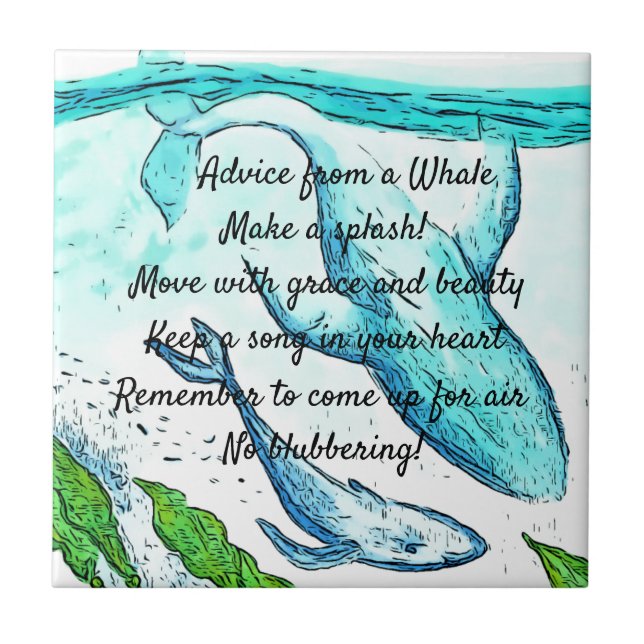 Advice from a Whale
Make a splash!
Move with grace and beauty
Keep a song in your heart
Remember to come up for air
No blubbering!